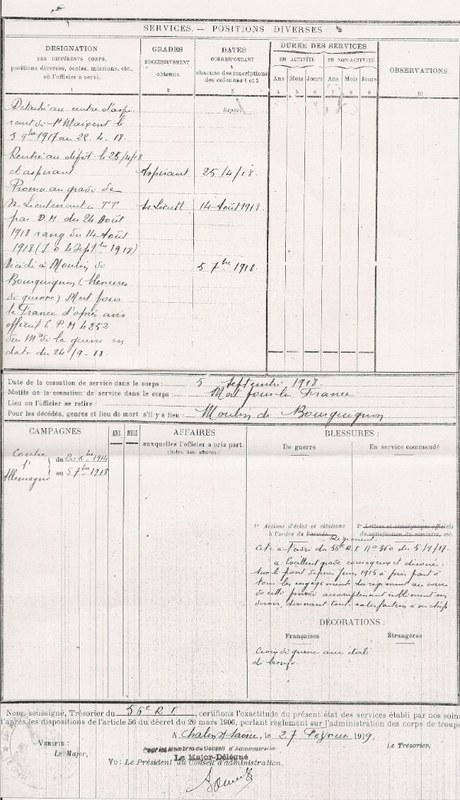 SERVICES. — POSITIONS DIVERSES
DÉSIGNATION
DES DIFFÉRENTS CORPS,
positions diverses, écoles, missions, etc.
où l'officier a servi.
GRADES
SUCCESSIVEMENT
obtenus.
DATES
CORRESPONDANT
à chacune des inscriptions
des colonnes 1 et 2
DURÉE DES SERVICES
EN ACTIVITÉ
EN NON-ACTIVITÉ
Ans Mois Jours Ans Mois Jours
OBSERVATIONS
Détaché au centre d'aspi
rants de St Maixent le
5 9bre 1917 au 22.4.18.
Rentré au dépôt le 25/4/18
et aspirant Aspirant 25/4/18.
Promu au grade de
S. Lieutenant à TT S. Lieutt 14 Août 1918.
par D.M. du 24 Août
1918 rang du 14 Août
1918 (J.O. 4 Septbre 1918)
Décédé à Moulin de 5 7bre 1918.
Bourguignon (blessures
de guerre) Mort pour
la France d'après avis
officiel
du Mre de la guerre en
date du
Date de la cessation de service dans le corps : 5 Septembre 1918
Motifs de la cessation de service dans le corps : Mort pour la France
Lieu où l'officier se retire :
Pour les décédés, genres et lieu de mort s'il y a lieu : Moulin de Bourguignon
CAMPAGNES
ANS MOIS
AFFAIRES
auxquelles l'officier a pris part.
BLESSURES:
De guerre.
En service commandé
Contre
l'
Allemagne
du
au 5 7bre 1918
1° Actions d'éclat et citations
à l'ordre du Régiment
2° Lettres et témoignages officiels
de satisfaction du ministre, etc.
Cité à l'ordre du 56e R.I. N° 360 du
Excellent gradé courageux et dévoué.
Sur le front depuis juin 1915 a pris part à
tous les engagements du régiment au cours
de cette période accomplissant
devoir, donnant toute satisfaction à ses chefs
DÉCORATIONS:
Françaises
Étrangères
Croix de guerre avec étoile
de bronze
Nous soussigné, Trésorier du 56e R.I., certifions l'exactitude du présent état des services établi par nos soins
d'après les dispositions de l'article 56 du décret du 20 mars 1906, portant règlement sur l'administration des corps de troupe
A Chalon s/Saône, le 27 Février 1919.
VÉRIFIÉ:
Le Major,
Le Trésorier,
Le Major-Délégué
VU: Le Président du Conseil d'administration.